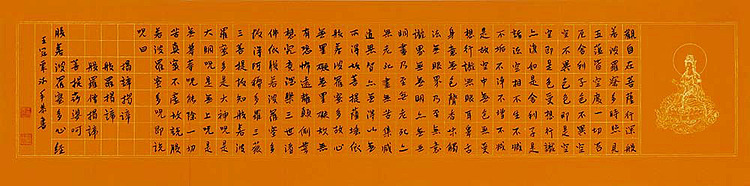 觀自在菩薩行深般
若波羅蜜多時照見
五蘊皆空度一切苦
厄舍利子色不異空
空不異色色即是空
空即是色受想行識
亦復如是舍利子是
諸法空相不生不滅
不垢不淨不增不減
是故空中無色無受
想行識無眼耳鼻舌
身意無色聲香味觸
法無眼界乃至無意
識界無無明亦無無
明盡乃至無老死亦
無老死盡無苦集滅
道無智亦無得以無
所得故菩提薩埵依
般若波羅蜜多故心
無罣礙無罣礙故無
有恐怖遠離顛倒夢
想究竟涅槃三世諸
佛依般若波羅蜜多
故得阿耨多羅三藐
三菩提故知般若波
羅蜜多是大神咒是
大明咒是無上咒是
無等等咒能除一切
苦真實不虛故說般
若波羅蜜多咒即說
咒曰
揭諦揭諦
般羅揭諦
般羅僧揭諦
菩提薩婆訶
般若波羅蜜多心經